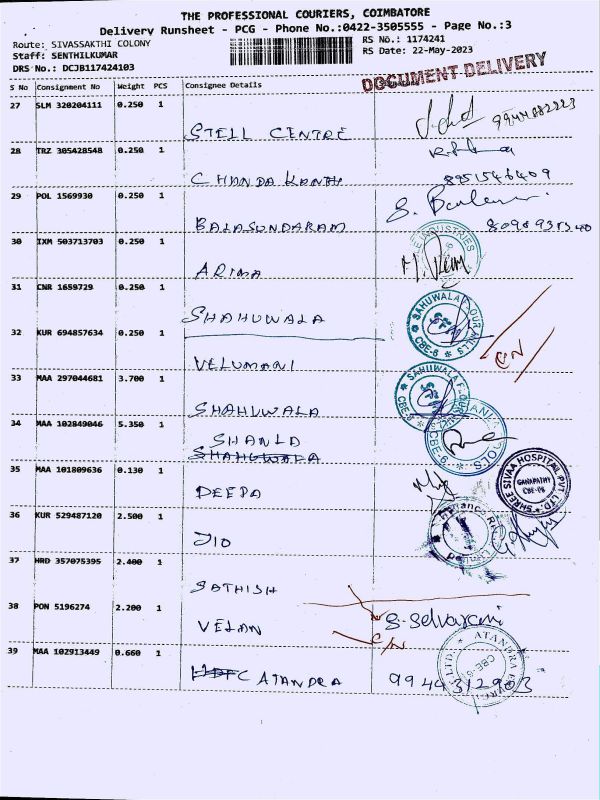 THE PROFESSIONAL COURIERS, COIMBATORE
Delivery Runsheet - PCG - Phone No.:0422-3505555 - Page No.:3
Route: SIVASSAKTHI COLONY
RS No.: 1174241
Staff: SENTHILKUMAR
RS Date: 22-May-2023
DRS No.: DCJB117424103
DOCUMENT DELIVERY
S No Consignment No Weight PCS Consignee Details
27 SLM 320204111 0.250 1
STELL CENTRE
28 TRZ 305428548 0.250 1
CHANDA KANTH 8951546409
29 POL 1569930 0.250 1
BALASUNDARAM
30 IXM 503713703 0.250 1
INDUSTRIES
ARIMA
31 CNR 1659729 0.250 1
SHAHUWALA
SAHUWALA FLOUR MILLS * CBE-6 *
CN
32 KUR 694857634 0.250 1
VELUMANI
33 MAA 297044681 3.700 1
SHAHUWALA
34 MAA 102849046 5.350 1
SHANLD
SHAHUWALA
CBE-6
35 MAA 101809636 0.130 1
DEEPA
SHREE SIVAA HOSPITAL PVT LTD.
GANAPATHY
CBE-06
36 KUR 529487120 2.500 1
JIO
37 HRD 357075395 2.400 1
SATHISH
38 PON 5196274 2.200 1
VELAN S. Selvarani
C/N
39 MAA 102913449 0.660 1
ATANDRA
ATANDRA ENERGY
CBE-6